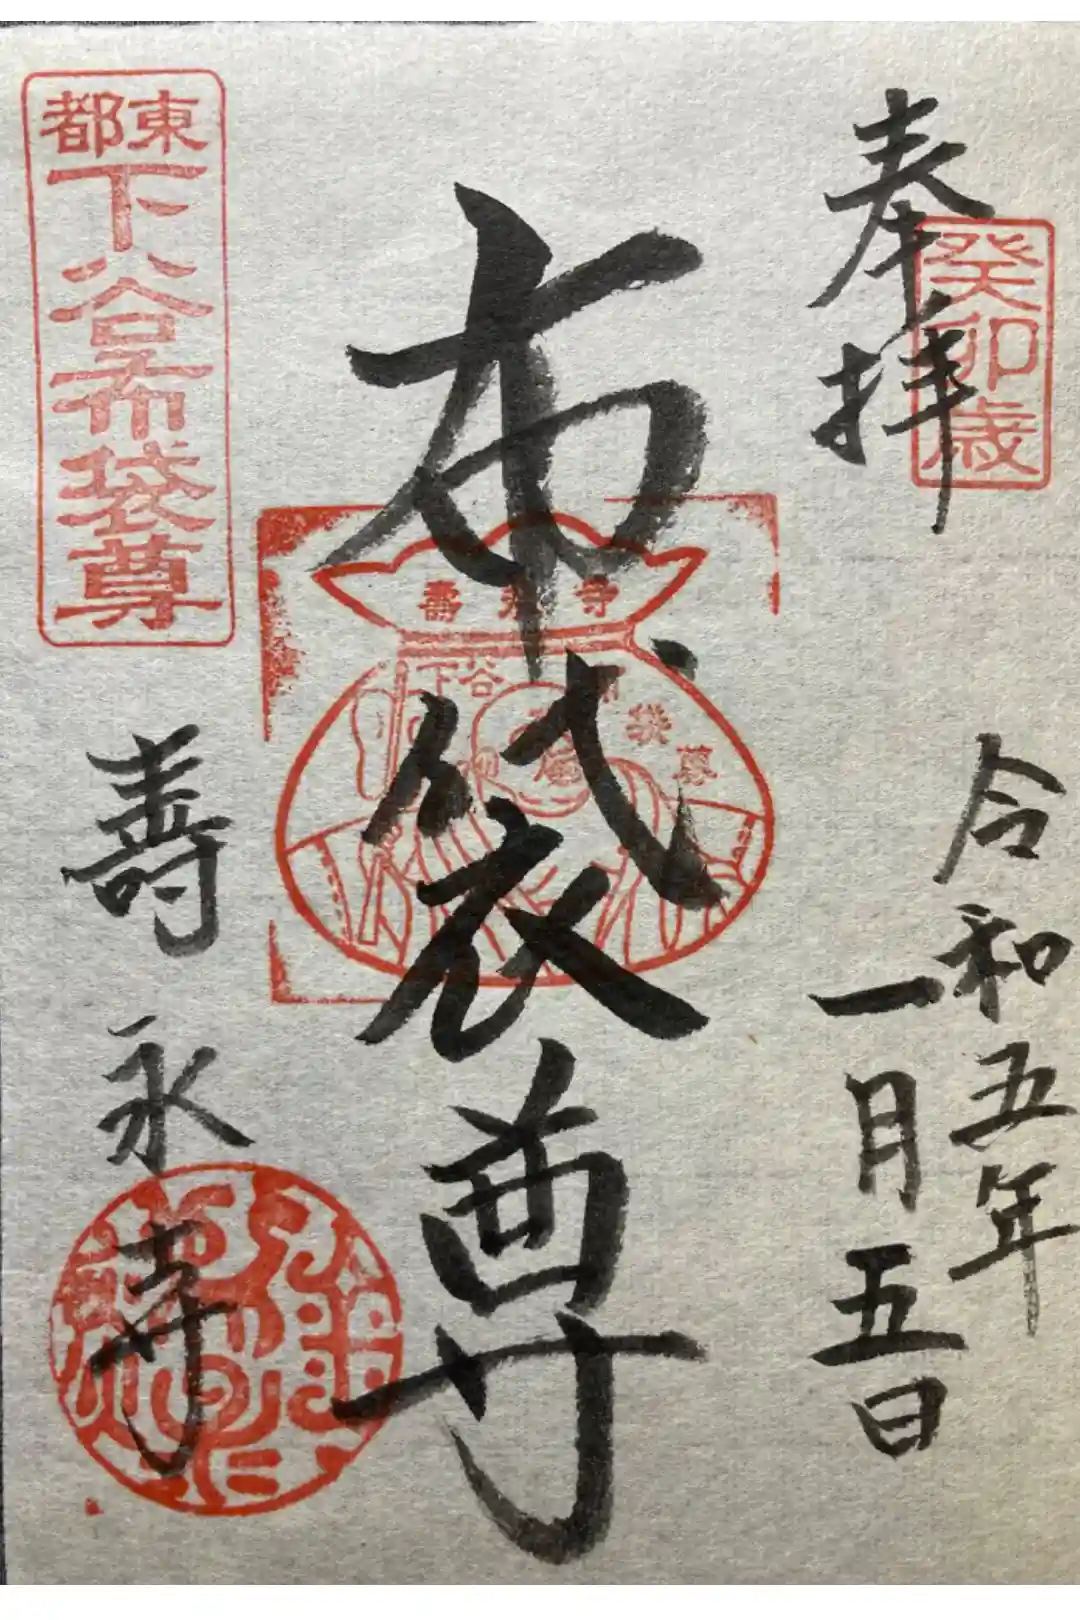 奉拝
癸卯歳
令和五年
一月五日
布袋尊
壽永寺
下谷
東都
下谷布袋尊
壽永寺